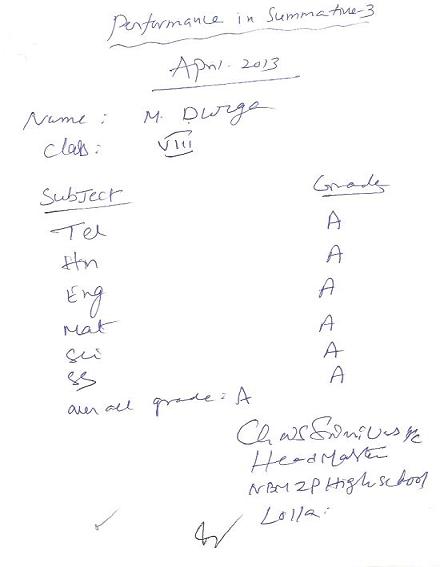 Performance in Summative-3
April. 2013
Name: M. Durga
Class: VIII
Subject Grade
Tel A
Hn A
Eng A
Mat A
Sci A
SS A
over all grade: A
Head Master
NBM ZP High school
Lolla.